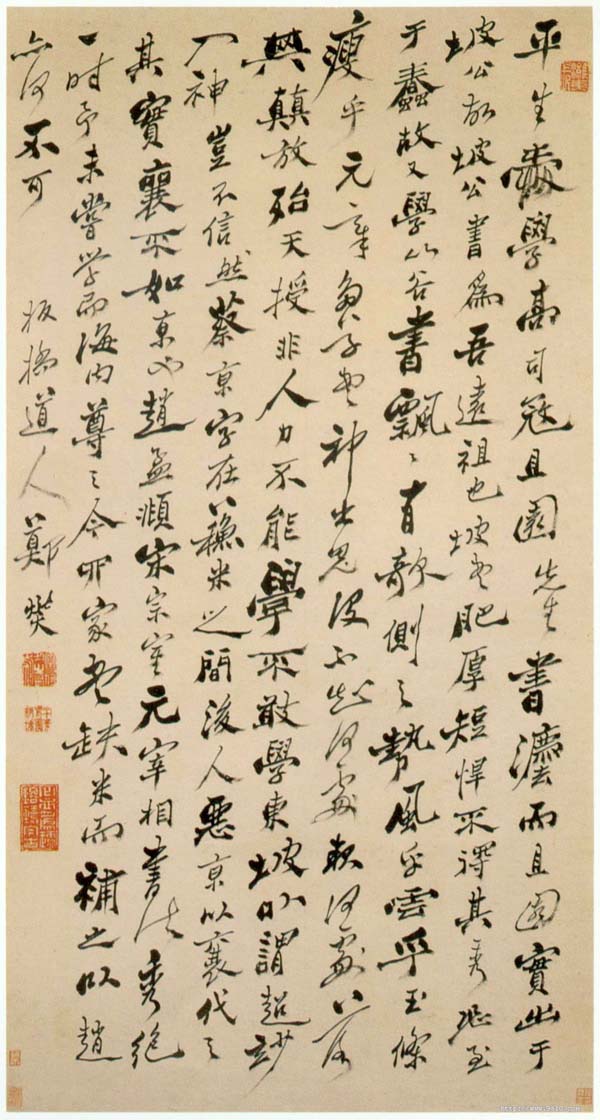 平生愛學高司寇且園先生書灋而且園實出于
坡公故坡公書為吾遠祖也坡書肥厚短悍不得其秀恐至
于蠢故又學山谷書飄〻有欹側之勢風乎雲乎玉條
瘦乎元章書神出鬼沒不知何處起何處落
顛放殆天授非人力不能學不敢學東坡以謂超妙
入神豈不信然蔡京字在蘇米之間後人惡京以襄代之
其實襄不如京也趙孟頫宋宗室元宰相書法秀絕
一時予未嘗學而海內尊之今四家書缺米而補之以趙
亦何不可
板橋道人鄭燮